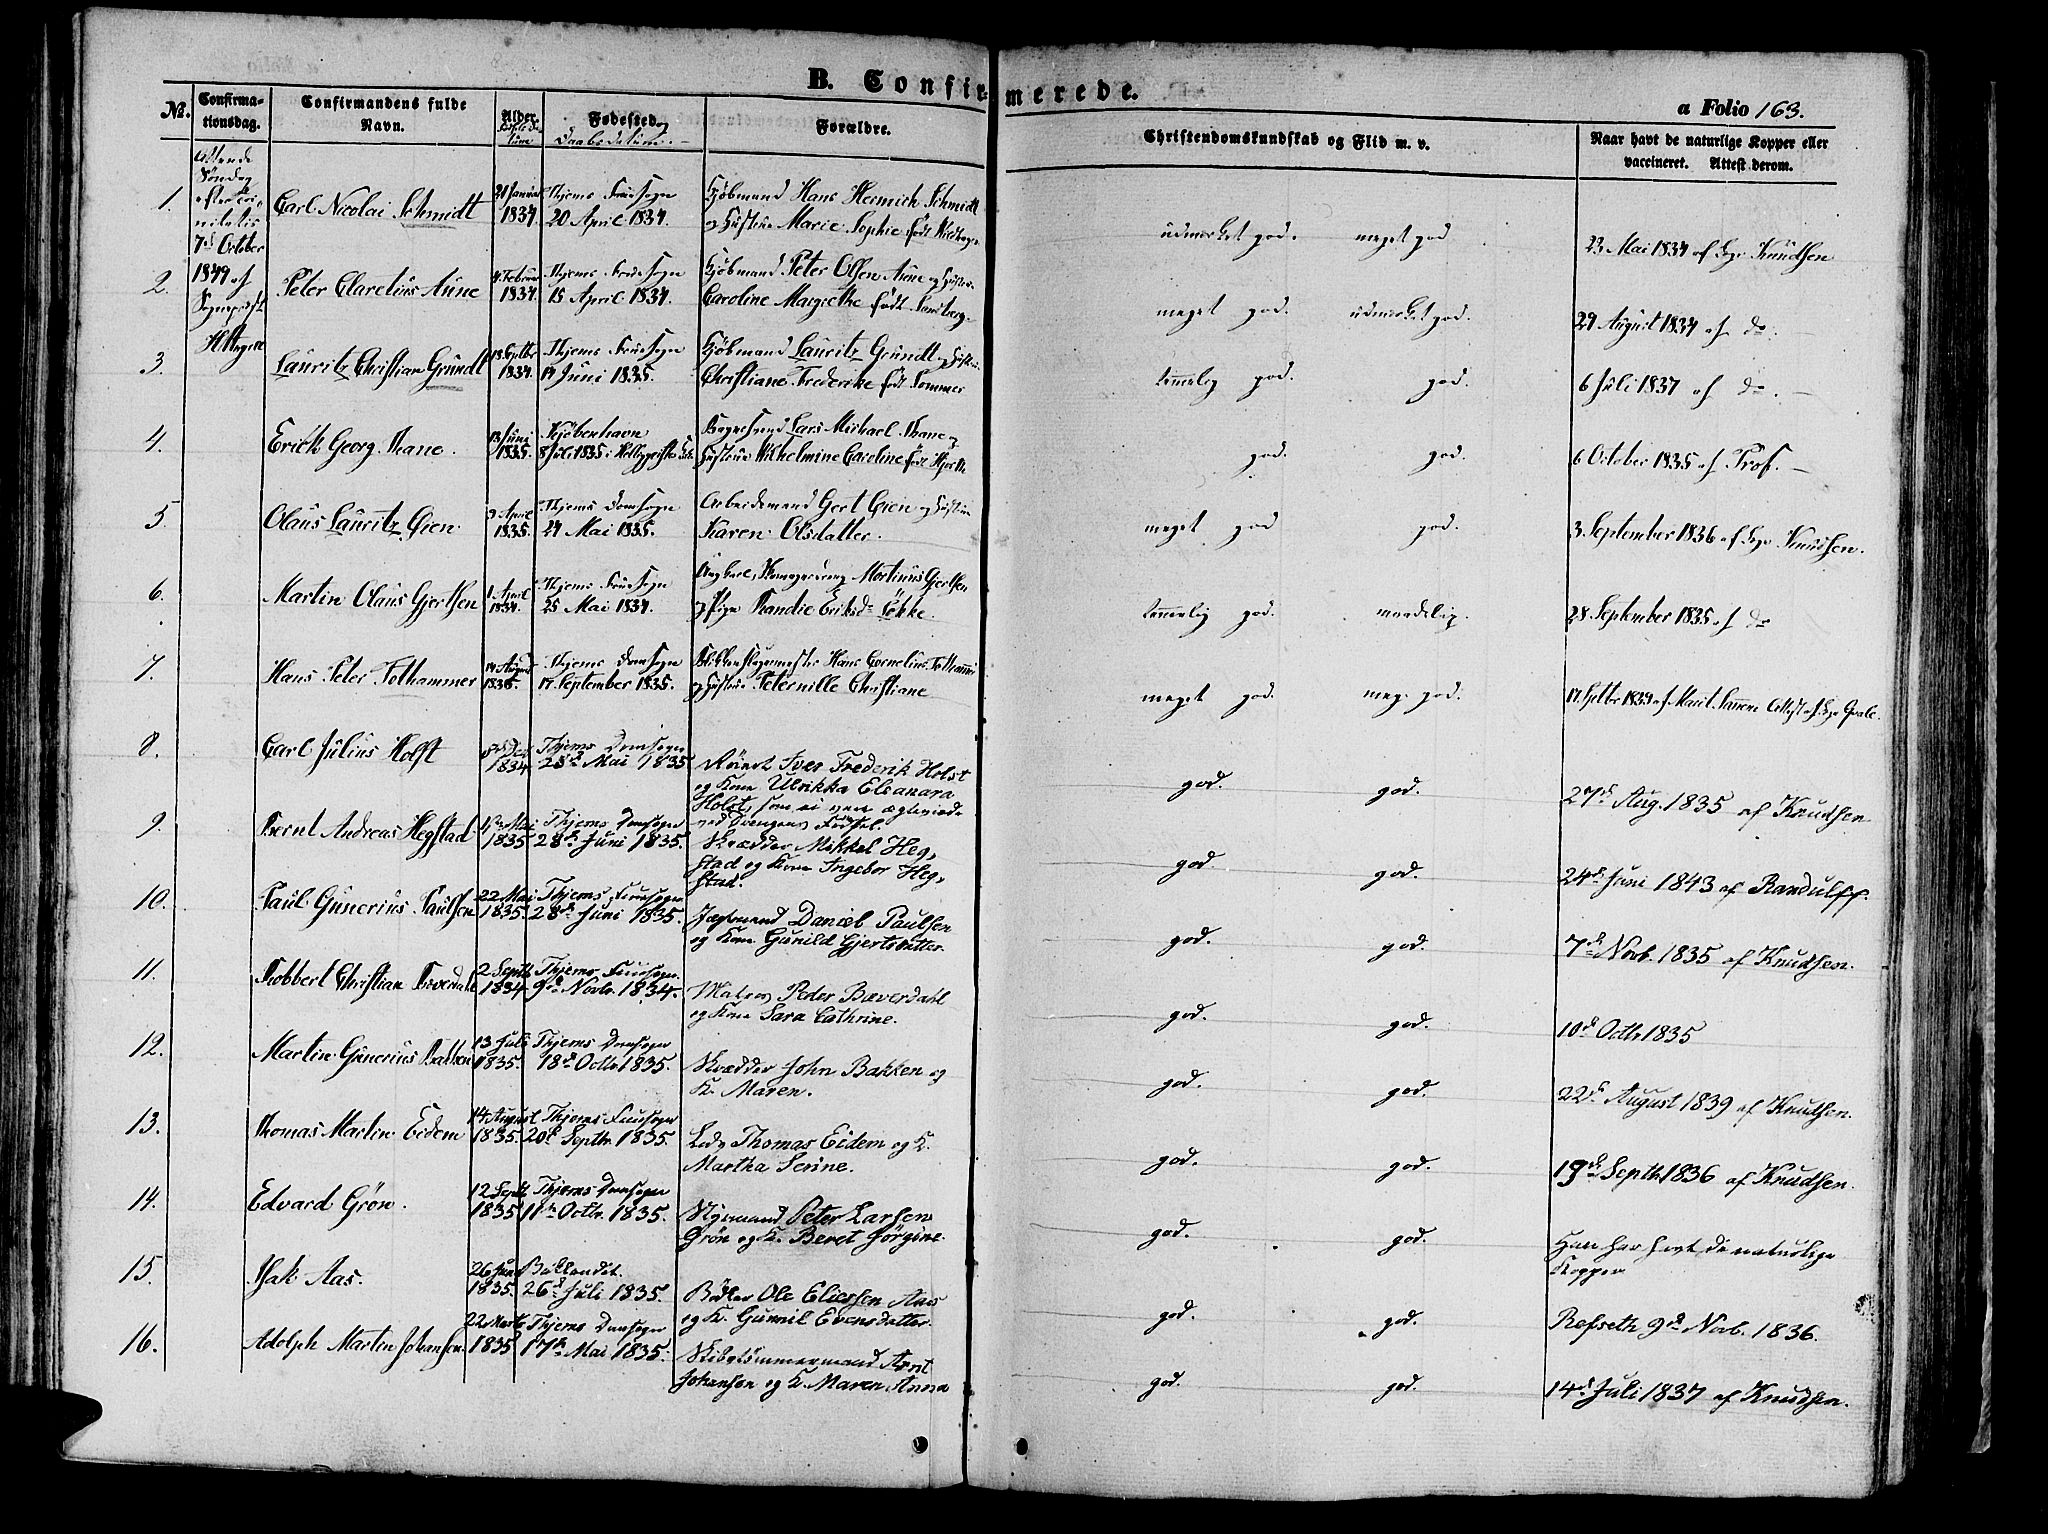 B. Confirmerede.
a Folio 163.
No. Confirmationsdag. Confirmandens fulde Navn. Alder. Fødested og Daabsdatum. Forældre. Christendomskundskab og Flid m. v. Naar havt de naturlige Kopper eller vaccineret. Attest derom.
Søndag
7de October
1849 af
1. Carl Nicolai Schmidt 21 Januar 1834. Thjems Fruesogn 20 April 1834. Kjøbmand Hans Hermich Schmidt
og Hustrue Marie Sophie født
udmerket god. meget god 23 Mai 1834 af Knudsen
2. Peter Claretius Aune 4 Februar 1834. Thjems Fruesogn 15 April 1834. Kjøbmand Peter Olsen Aune og Hustru
Caroline Margrethe født Sandberg.
meget god. udmerket god. 29 August 1834 af do.
3. Lauritz Christian Grundt 13 Septbr 1834. Thjems Fruesogn 14 Juni 1835. Kjøbmand Lauritz Grundt og Hustrue
Christiane Frederike født Sommer
temmelig god. god. 6 Juli 1837 af do.
4. Erich Georg Thane. 13 Juni 1835. Kjøbenhavn 8 Juli 1835 i Lars Michael Thane og
Hustrue Wilhelmine Caroline født Hjorth
god. god. 6 October 1835 af Prof.
5. Olaus Lauritz Gien. 9 April 1835. Thjems Domsogn 24 Mai 1835. Arbeidsmand Gert Gien og Hustrue
Karen Olsdatter.
meget god god. 3 September 1836 af Knudsen.
6. Martin Olaus Gjertsen 1 April 1834. Thjems Fruesogn 25 Mai 1834. Ungkarl, Mortinus Gjertsen
og Pige Randie Eriksdr Løkke.
temmelig god. maadelig. 28 September 1835 af do
7. Hans Peter Folhammer 14 August 1835. Thjems Domsogn 17 September 1835. Hans Cornelius
og Hustrue Peternille Christiane
meget god. meg. god. 17 Septbr 1839 af
8. Carl Julius Holst Dec 1834 Thjems Domsogn 28de Mai 1835 Iver Frederik Holst
og Kone Ulrikka Eleanara
Holst, som ei vare ægteviede
ved Drengens Fødsel.
god. god. 27de Aug. 1835 af Knudsen
9. Bernt Andreas Hegstad Mai 1835 Thjems Domsogn 28de Juni 1835. Skrædder Mikkel Heg-
stad og Kone Ingebor Heg-
stad.
god god. 24de Juni 1843 af Randulff.
10. Paul Gunerius Paulsen 22 Mai 1835. Thjems Fruesogn 28de Juni 1835. Daniel Paulsen
og Kone Gunild Gjertsdatter.
god. god. 7de Novb. 1835 af Knudsen.
11. Robbert Christian Beverdahl 2 Septb 1834. Thjems Fruesogn 9de Novbr. 1834. Matros Peder Bæverdahl
og Kone Sara Cathrine.
god. god. 10de Octbr 1835
12. Martin Gunerius Bakken 13 Juli 1835. Thjems Domsogn 18de Octbr 1835. Skrædder John Bakken og
K. Maren.
god. god. 22de August 1839 af Knudsen.
13. Thomas Martin Eidem 14 August 1835. Thjems Fruesogn 20de Septbr. 1835. Lods Thomas Eidem og K.
Martha Serine.
god. god. 19de Septb. 1836 af Knudsen.
14. Edvard Grøn. 12 Septb 1835 Thjems Domsogn 11te Octbr. 1835. Styrmand Peter Larsen
Grøn og K. Beret Jørgine.
god. god. Han har havt de naturlige
Kopper
15. Isak Aas. 26 Juni 1835. Baklandet. 26de Juli 1835. Bødker Ole Eliassen Aas
og K. Gunnil Evensdatter.
god. god. Refseth 9de Novb. 1836.
16. Adolph Martin Johansen. 22 Marts 1835 Thjems Domsogn 17de Mai 1835. Skibstømmermand Arnt
Johansen og K. Maren Anna
god. god. 14de Juli 1837 af Knudsen.